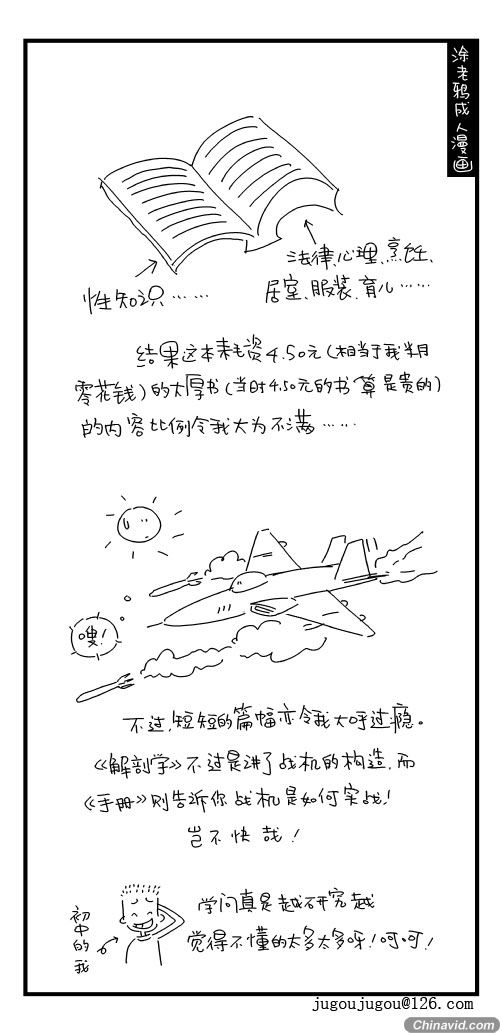 涂老鸦成人漫画
性知识……
法律、心理、烹饪、
居室、服装、育儿……
结果这本耗资4.50元(相当于我半月
零花钱)的大厚书(当时4.50元的书算是贵的)
的内容比例令我大为不满……
嗖!
不过,短短的篇幅亦令我大呼过瘾。
《解剖学》不过是讲了战机的构造,而
《手册》则告诉你战机是如何实战!
岂不快哉!
初中的我
学问真是越研究越
觉得不懂的太多太多呀!呵呵!
jugoujugou@126.com
Chinavid.com